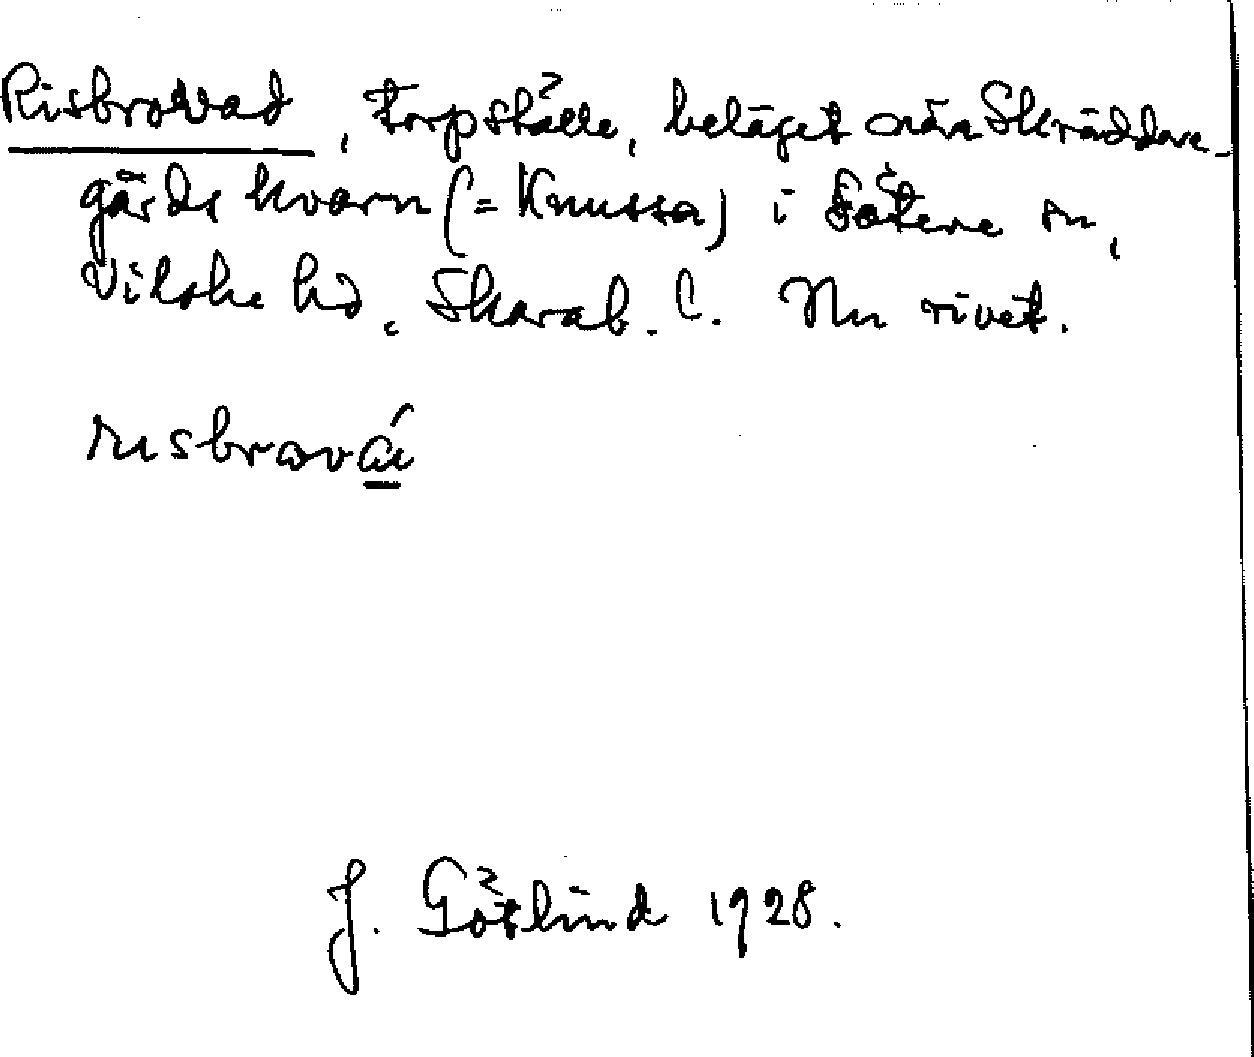 Risbrovad, torpställe, beläget nära Skräddare-
gärds kvarn (= Knussa) i Sätene sn,
Vilske hd, Skarab. l. Nu rivet.
risbrová
J. Götlind 1928.